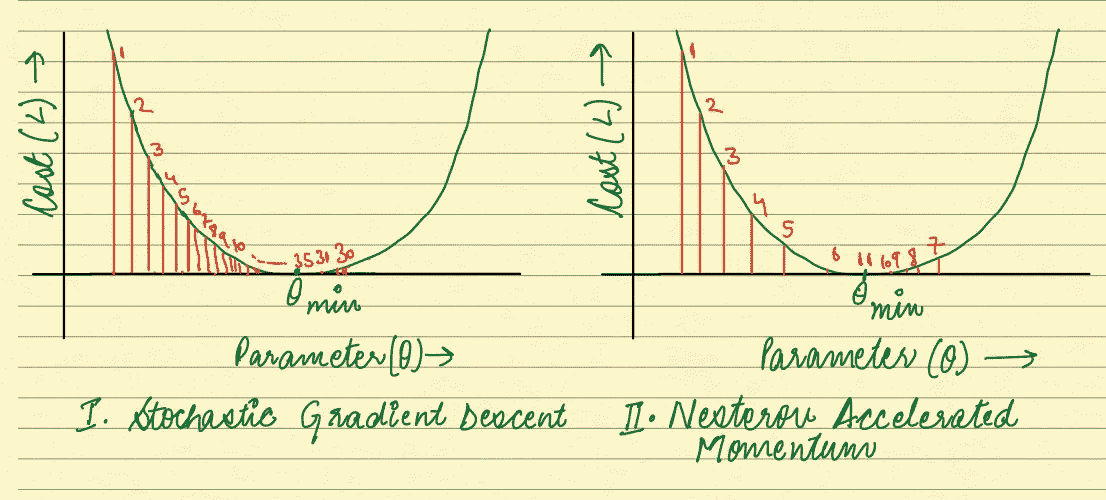 Cost (L) →
1
2
3
4
5
6
7
8
9
10
35 31 30
θ min
Parameter (θ) →
I. Stochastic Gradient Descent
Cost (L) →
1
2
3
4
5
6 11 10 9 8 7
θ min
Parameter (θ) →
II. Nesterov Accelerated
Momentum